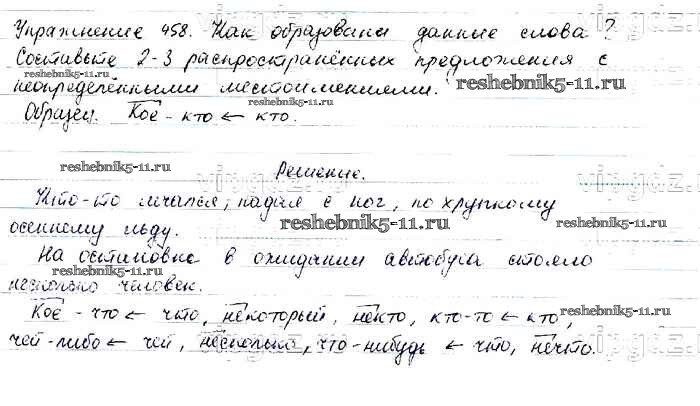 Упражнение 458. Как образованы данные слова?
Составьте 2-3 распространённых предложения с
reshebnik5-11.ru
неопределёнными местоимениями.
reshebnik5-11.ru
Образец. Кое-кто ← кто.
reshebnik5-11.ru
reshebnik5-11.ru
Решение.
Кто-то мчался, падая с ног, по хрупкому
осеннему льду.
reshebnik5-11.ru
На остановке в ожидании автобуса стояло
reshebnik5-11.ru
несколько человек.
Кое-что ← что, некоторый, некто, кто-то ← кто,
reshebnik5-11.ru
чей-либо ← чей, несколько, что-нибудь ← что, нечто.